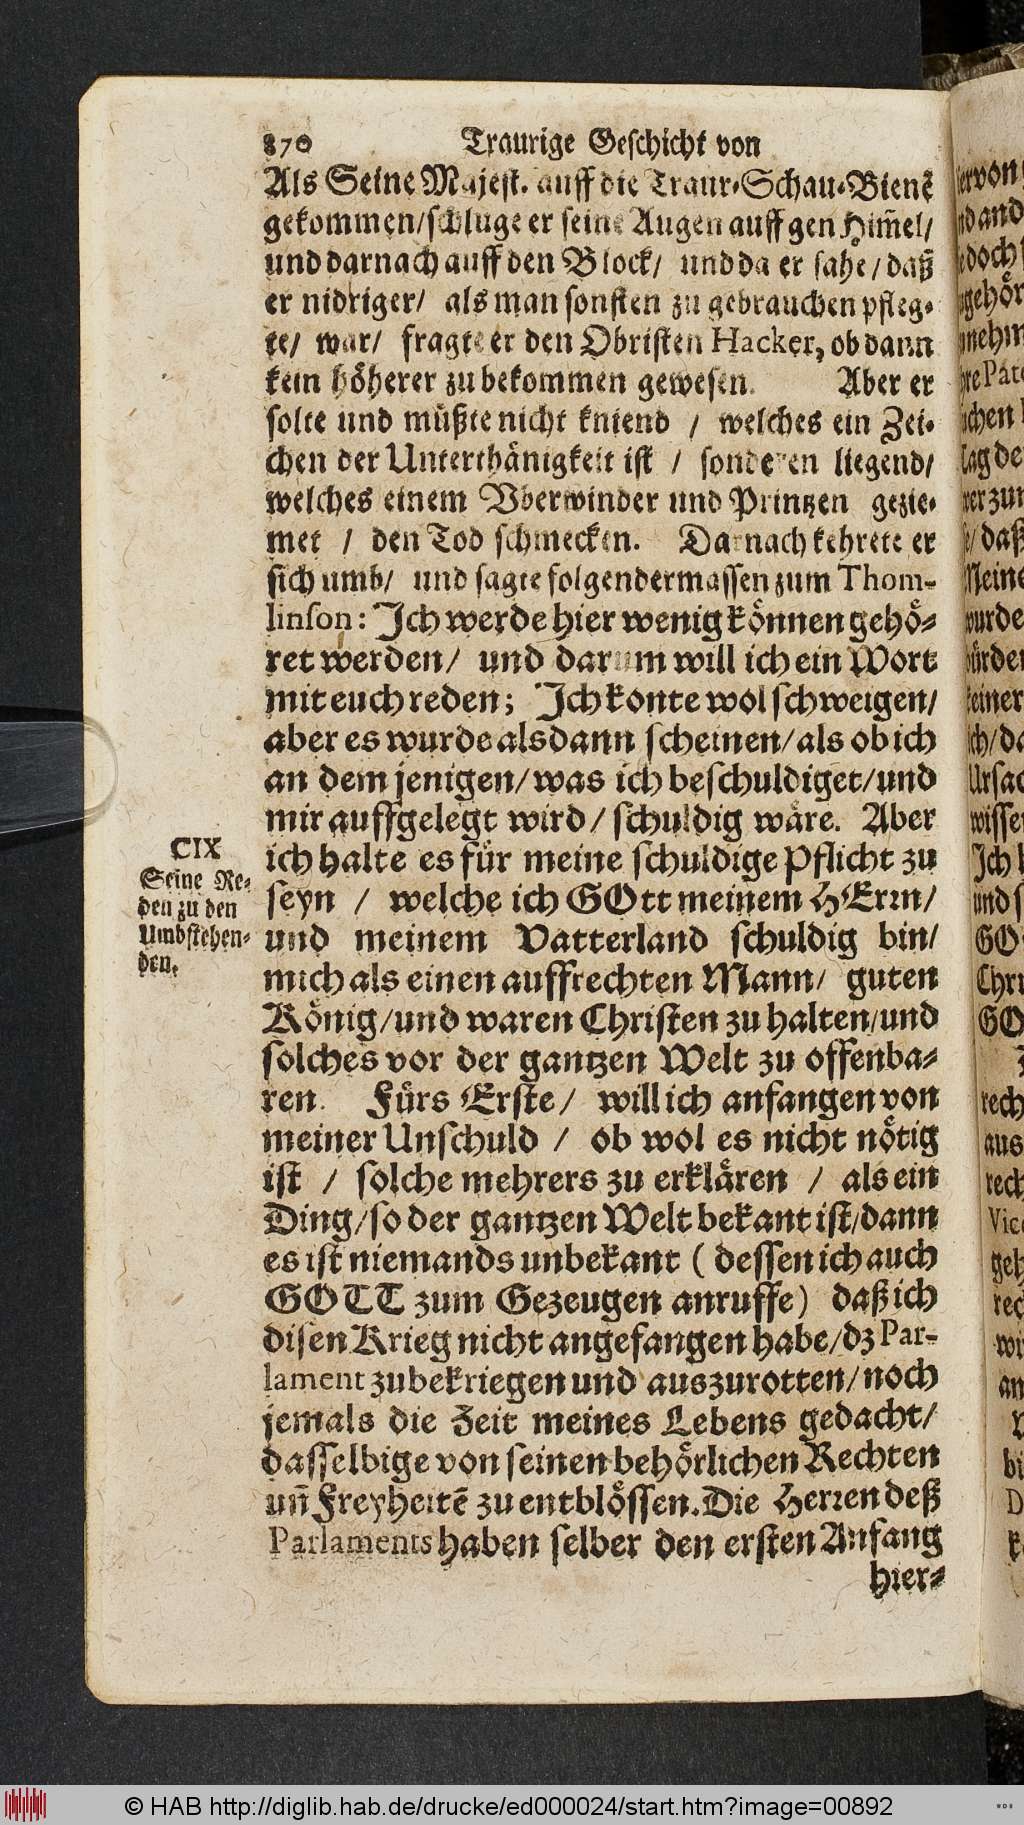 870 Traurige Geschicht von
Als Seine Majest. auff die Traur-Schau-Bienē
gekommen/schluge er seine Augen auff gen Him̄el/
und darnach auff den Block/ und da er sahe/daß
er nidriger/ als man sonsten zu gebrauchen pfleg-
te/ war/ fragte er den Obristen Hacker, ob dann
kein höherer zu bekommen gewesen. Aber er
solte und müßte nicht kniend / welches ein Zei-
chen der Unterthänigkeit ist / sonderen liegend/
welches einem Vberwinder und Printzen gezie-
met / den Tod schmecken. Darnach kehrete er
sich umb/ und sagte folgendermassen zum Thom-
linson: Ich werde hier wenig können gehö-
ret werden/ und darum will ich ein Wort
mit euch reden; Ich konte wol schweigen/
aber es wurde alsdann scheinen/als ob ich
an dem jenigen/was ich beschuldiget/und
mir auffgelegt wird/schuldig wäre. Aber
ich halte es für meine schuldige Pflicht zu
seyn / welche ich GOtt meinem HErrn/
und meinem Vatterland schuldig bin/
mich als einen auffrechten Mann/ guten
König/und waren Christen zu halten/und
solches vor der gantzen Welt zu offenba-
ren. Fürs Erste/ will ich anfangen von
meiner Unschuld / ob wol es nicht nötig
ist / solche mehrers zu erklären / als ein
Ding/so der gantzen Welt bekant ist/dann
es ist niemands unbekant (dessen ich auch
GOTT zum Gezeugen anruffe) daß ich
disen Krieg nicht angefangen habe/dz Par-
lament zubekriegen und auszurotten/noch
jemals die Zeit meines Lebens gedacht/
dasselbige von seinen behörlichen Rechten
un̄ Freyheitē zu entblössen. Die Herren deß
Parlaments haben selber den ersten Anfang
hier-
CIX
Seine Re-
den zu den
Umbstehen-
den.
© HAB http://diglib.hab.de/drucke/ed000024/start.htm?image=00892